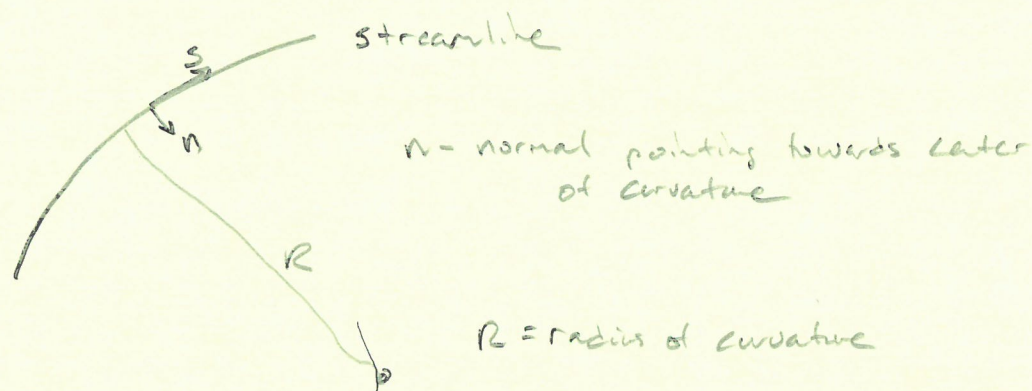 streamline
s
n
n - normal pointing towards center
of curvature
R
R = radius of curvature